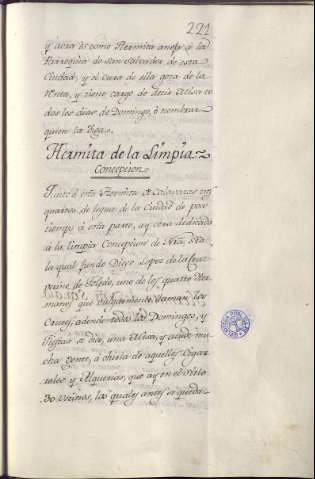 221
y aora es como Hermita anexa à la
Parroquia de San Salvador de esta
Ciudad, y el Cura de ella goza de la
Renta, y tiene cargo de decir Missa to
dos los dias de Domingo, ò nombrar
quien la diga.
Hermita de la Limpia
Concepcion
Junto à esta Hermita de
quartos de legua de la Ciudad de poco
tiempo à esta parte, ay otra dedicada
à la Limpia Concepcion de Nra. Sra.
la qual fundo Diego Lopez de la Cruz
vecino de Toledo, uno de los quatro Her
manos que vulgarmente llaman los
Cruces, adonde todos los Domingos, y
Fiestas se dice una Missa, y acude mu
cha gente, à ohirla de aquellos Cigar
rales y Alquerias, que ay en el sitio
30 vecinos, los quales antes se queda